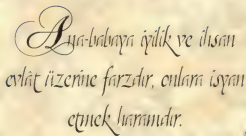 Ana-babaya iyilik ve ihsan
evlât üzerine farzdır, onlara isyan
etmek haramdır.